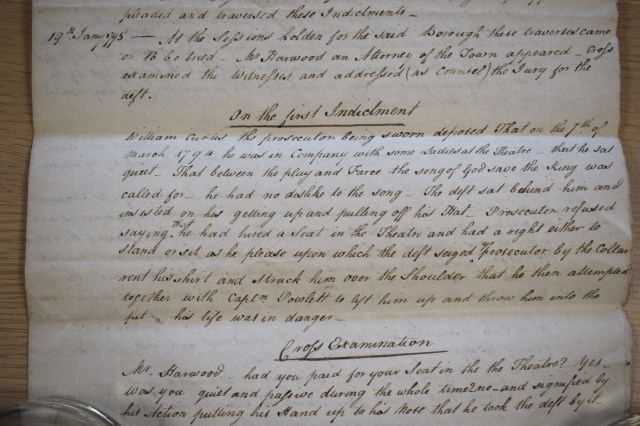 pleaded and traversed these Indictments —
19th Jany 1795 — At the Sessions holden for the said Borough these traverses came
on to be tried — Mr. Harwood an Attorney of the Town appeared — Cross
examined the Witnesses and addressed (as Counsel) the Jury for the
deft.
On the first Indictment
William Curtis the prosecutor being sworn deposed That on the 7th of
March 1794 he was in Company with some Ladies at the Theatre — that he sat
quiet — That between the play and Farce the song of God save the King was
called for — he had no dislike to the song — The deft sat behind him and
insisted on his getting up and pulling off his Hat — Prosecutor refused
saying he had hired a Seat in the Theatre and had a right either to
stand or sit as he please upon which the deft seized Prosecutor by the Collar
rent his shirt and struck him over the Shoulder that he then attempted
together with Captn Powlett to lift him up and throw him into the
pit — his life was in danger —
Cross Examination
Mr. Harwood — had you paid for your Seat in the the Theatre? Yes —
was you quiet and passive during the whole time? no — and signified by
his Action putting his Hand up to his Nose that he took the deft by it.